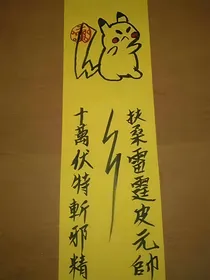 扶桑雷霆皮元帥
十萬伏特斬邪精